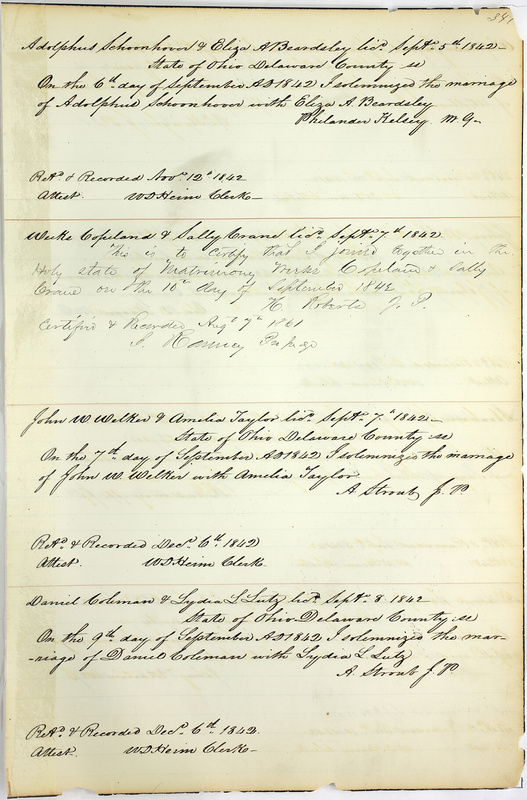 Adolphus Schoonhover & Eliza A Beardsley licd Septr 5th 1842
State of Ohio Delaware County ss
On the 6th day of September AD 1842 I solemnized the marriage
of Adolphus Schoonhover with Eliza A. Beardsley
Philander Kelsey M. G.
Retd & Recorded Novr 12th 1842
Attest. W D Heim Clerk
Weeks Copeland & Sally Crane licd Septr 7th 1842
This is to certify that I joined together in the
Holy state of Matrimony Weeks Copeland & Sally
Crane on the 10th day of September 1842
H. Roberts J. P.
Certified & Recorded Augt 7th 1861
Ranney
John W. Welker & Amelia Taylor licd Septr 7th 1842
State of Ohio Delaware County ss
On the 7th day of September AD 1842 I solemnized the marriage
of John W. Welker with Amelia Taylor
A Stroub J. P
Retd & Recorded Decr 6th 1842
Attest. W D Heim Clerk.
Daniel Coleman & Lydia L. Lutz licd Septr 8. 1842
State of Ohio Delaware County ss
On the 9th day of September AD 1842 I solemnized the mar-
-riage of Daniel Coleman with Lydia L Lutz
A Stroub J. P.
Retd & Recorded Decr 6th 1842.
Attest. W D Heim Clerk